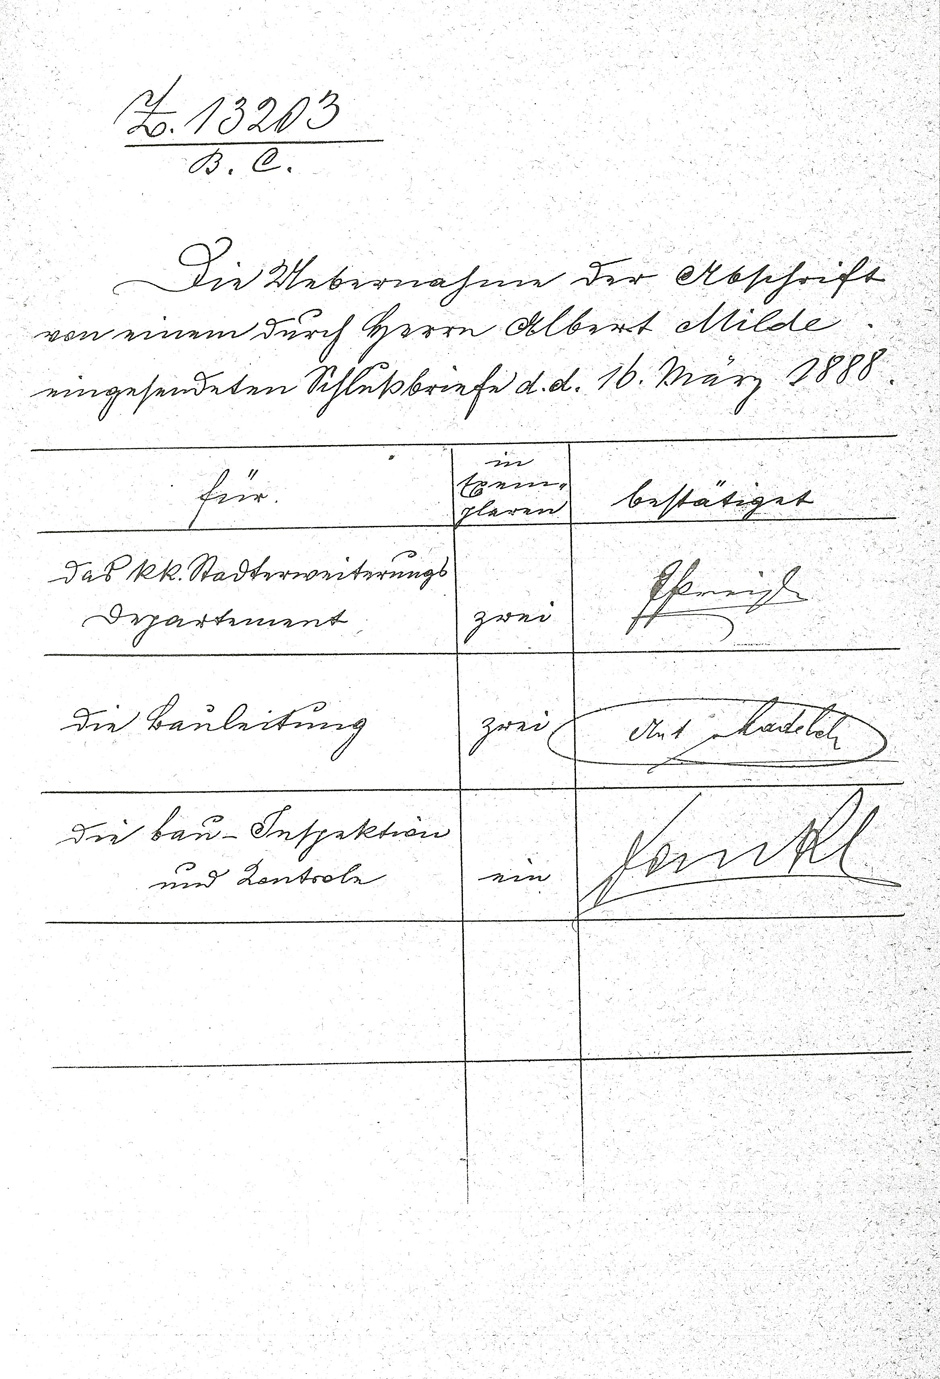 Z. 13203
B. C.
Die Uebernahme der Abschrift
von einem durch Herrn Albert Milde
eingesendeten Schlußbriefe d. d. 16. März 1888.
für.
in
Exem-
plaren
bestätiget
das kk. Stadterweiterungs
Departement
zwei
die Bauleitung
zwei
die Bau-Inspektion
und Kontrole
ein